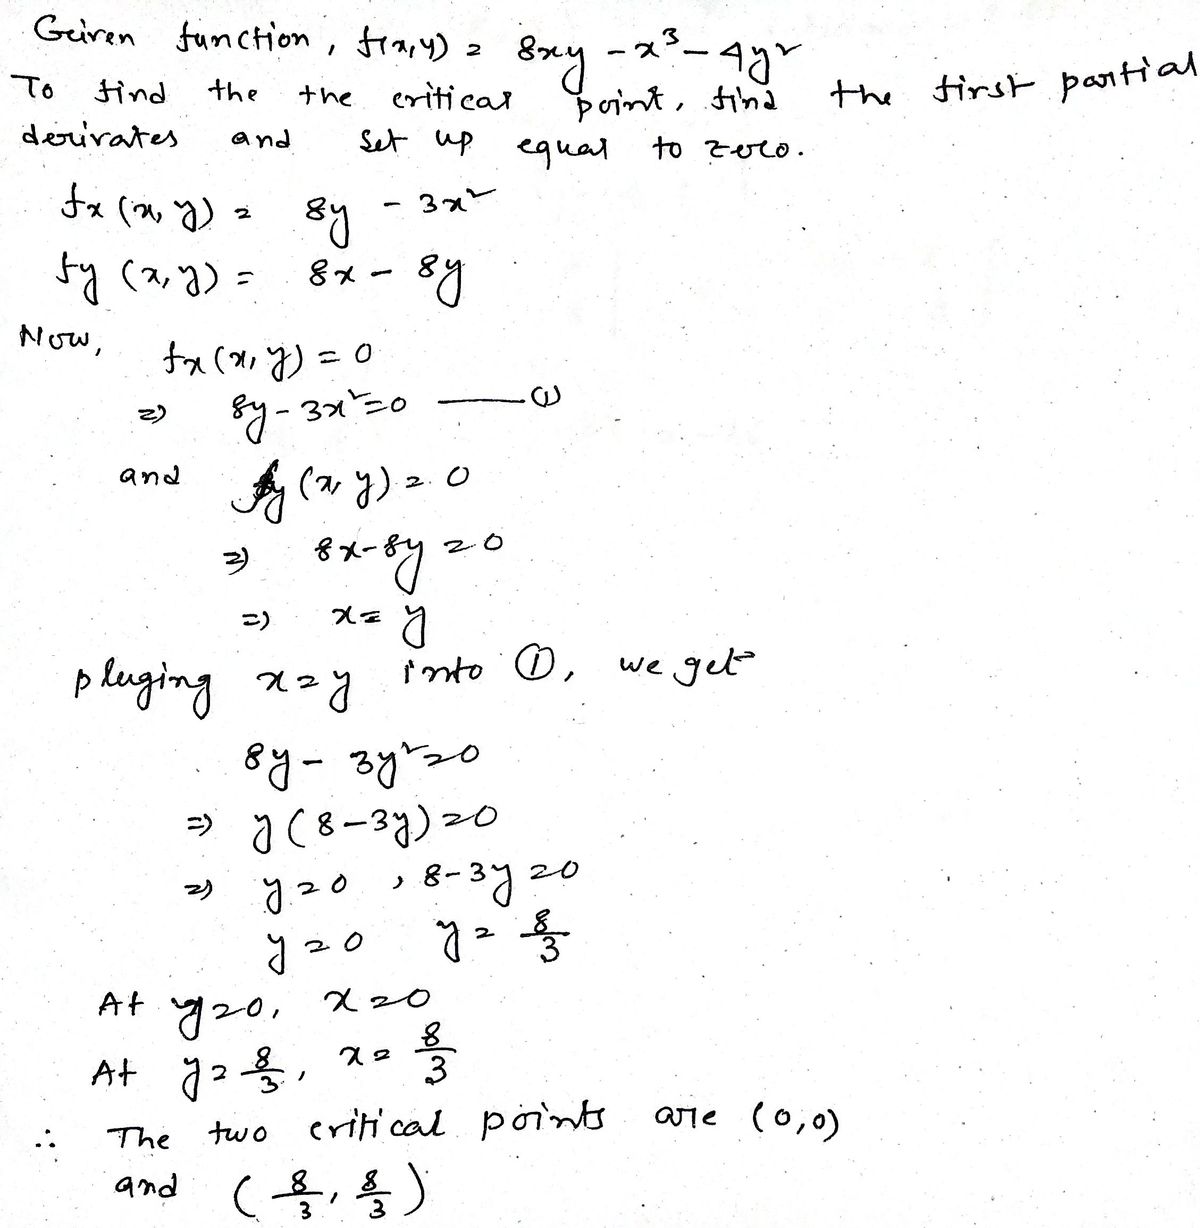 Given function, f(x,y) = 8xy - x³ - 4y²
To find the the critical point, find the first partial
derivates and set up equal to zero.
fx (x, y) = 8y - 3x²
fy (x, y) = 8x - 8y
Now, fx (x, y) = 0
⇒ 8y - 3x² = 0 —— (1)
and fy (x, y) = 0
⇒ 8x - 8y = 0
⇒ x = y
pluging x = y into ①, we get
8y - 3y² = 0
⇒ y (8 - 3y) = 0
⇒ y = 0 , 8 - 3y = 0
y = 0 y = 8/3
At y = 0, x = 0
At y = 8/3, x = 8/3
∴ The two critical points are (0,0)
and (8/3, 8/3)